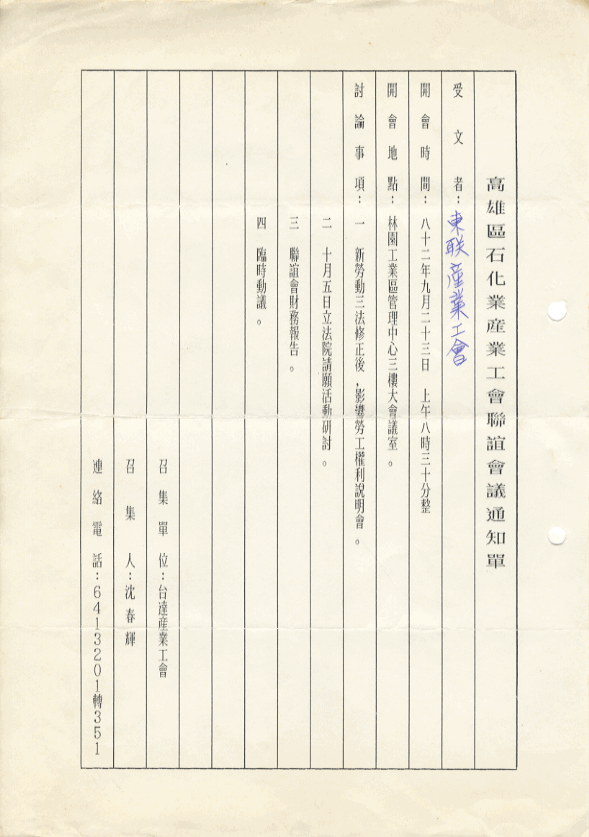 高雄區石化業產業工會聯誼會議通知單
受文者：東联產業工會
開會時間：八十二年九月二十三日　上午八時三十分整
開會地點：林園工業區管理中心三樓大會議室。
討論事項：一　新勞動三法修正後，影響勞工權利說明會。
二　十月五日立法院請願活動研討。
三　聯誼會財務報告。
四　臨時動議。
召集單位：台達產業工會
召集人：沈春輝
連絡電話：6413201轉351